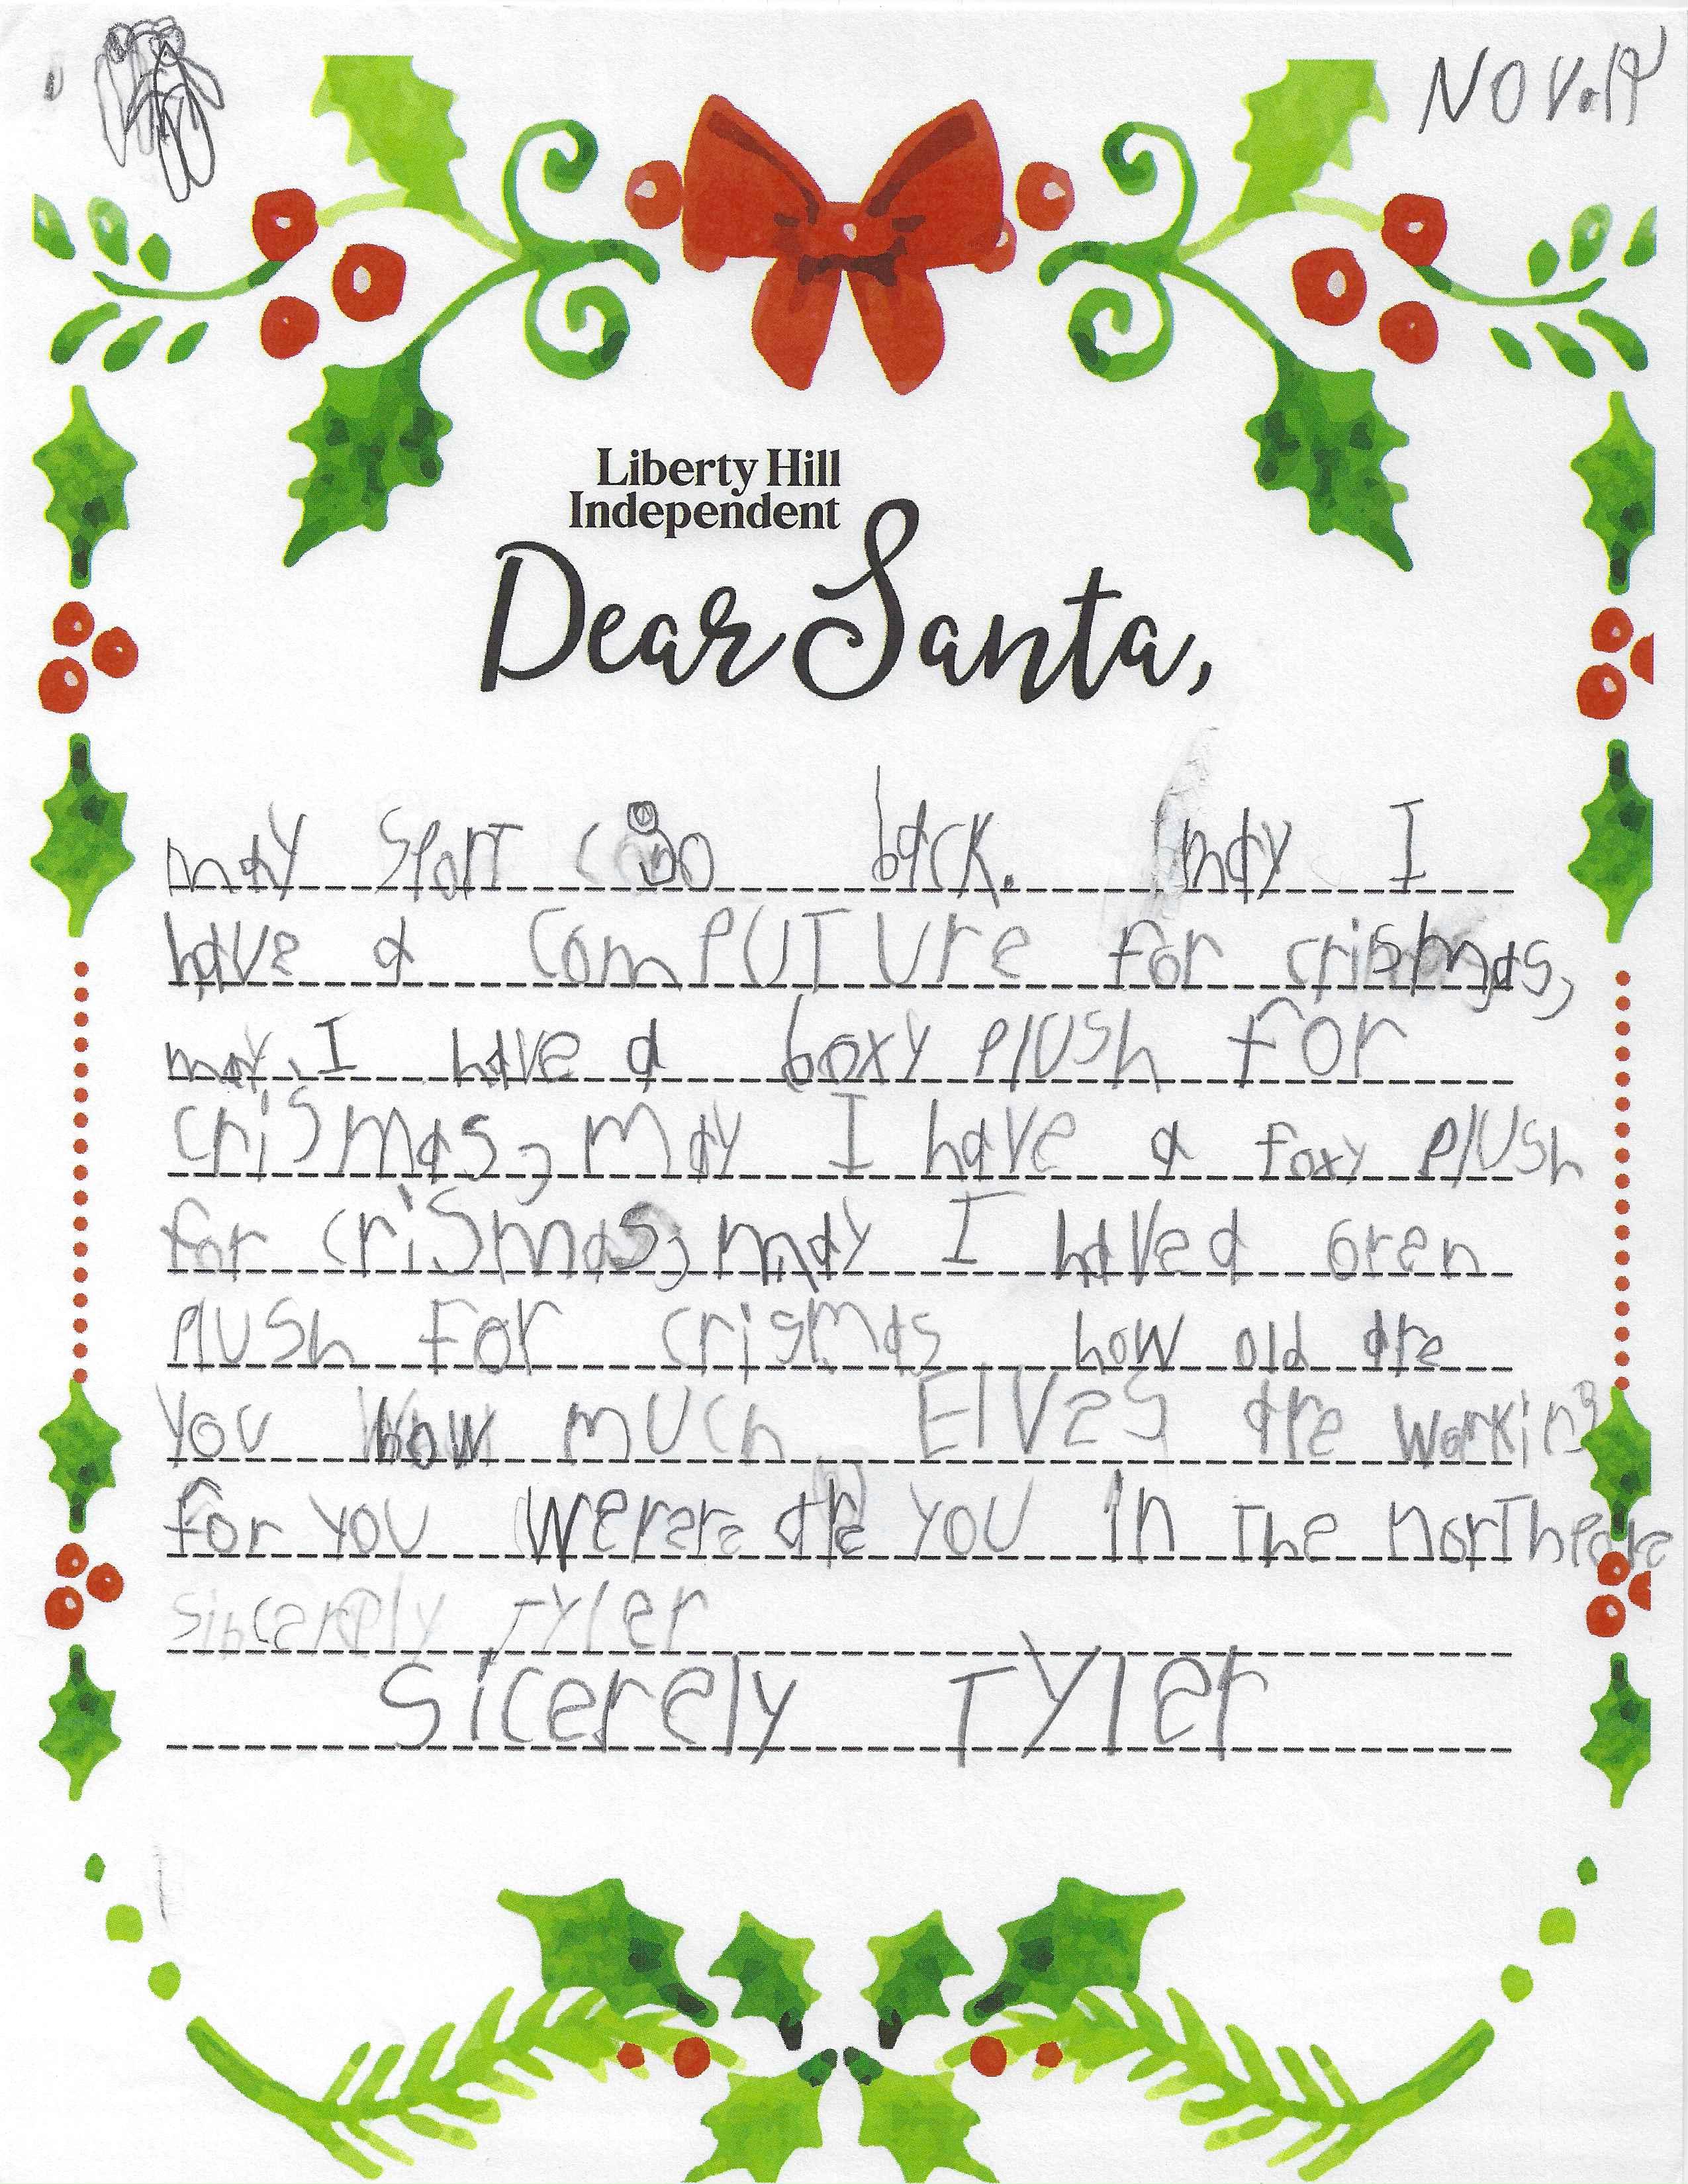 NOV.A
Liberty Hill
Independent
Dear Santa,
may Spart back. may I
have a comPUTUre for crismas,
may I have a boxy Plush for
crismas, may I have a foxy Plush
for crismas, may I have a oren
Plush For crismas how old are
you how much Elves are working
for you are you in the northpole
sincerely Tyler
sicerely Tyler